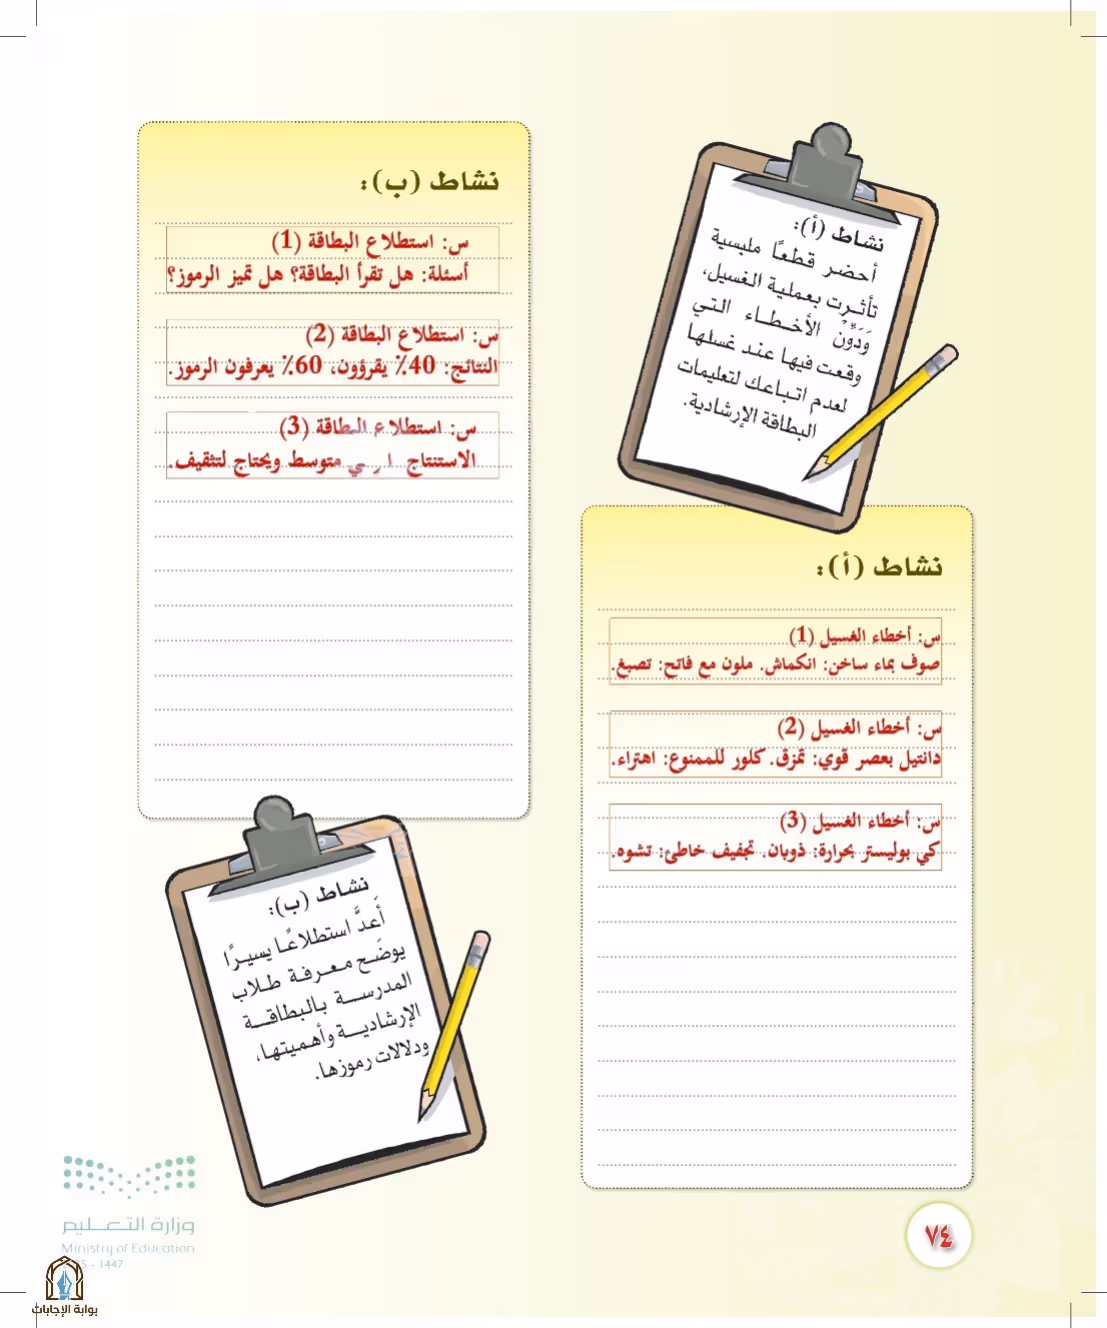 نشاط (أ):
أحضر قطعًا ملبسية
تأثرت بعملية الغسيل،
وَدَوِّنْ الأخطاء التي
وقعت فيها عند غسلها
لعدم اتباعك لتعليمات
البطاقة الإرشادية.
نشاط (أ):
س: أخطاء الغسيل (1)
صوف بماء ساخن: انكماش. ملون مع فاتح: تصبغ.
س: أخطاء الغسيل (2)
دانتيل بعصر قوي: تمزق. كلور للممنوع: اهتراء.
س: أخطاء الغسيل (3)
كي بوليستر بحرارة: ذوبان. تجفيف خاطئ: تشوه.
نشاط (ب):
س: استطلاع البطاقة (1)
أسئلة: هل تقرأ البطاقة؟ هل تميز الرموز؟
س: استطلاع البطاقة (2)
النتائج: 40٪ يقرؤون، 60٪ يعرفون الرموز.
س: استطلاع البطاقة (3)
الاستنتاج متوسط ويحتاج لتثقيف.
نشاط (ب):
أَعدَّ استطلاعًا يسيرًا
يوضَح معرفة طلاب
المدرسة بالبطاقة
الإرشادية وأهميتها،
ودلالات رموزها.
وزارة التعليم
Ministry of Education
5 - 1447
٧٤
بوابة الإجابات